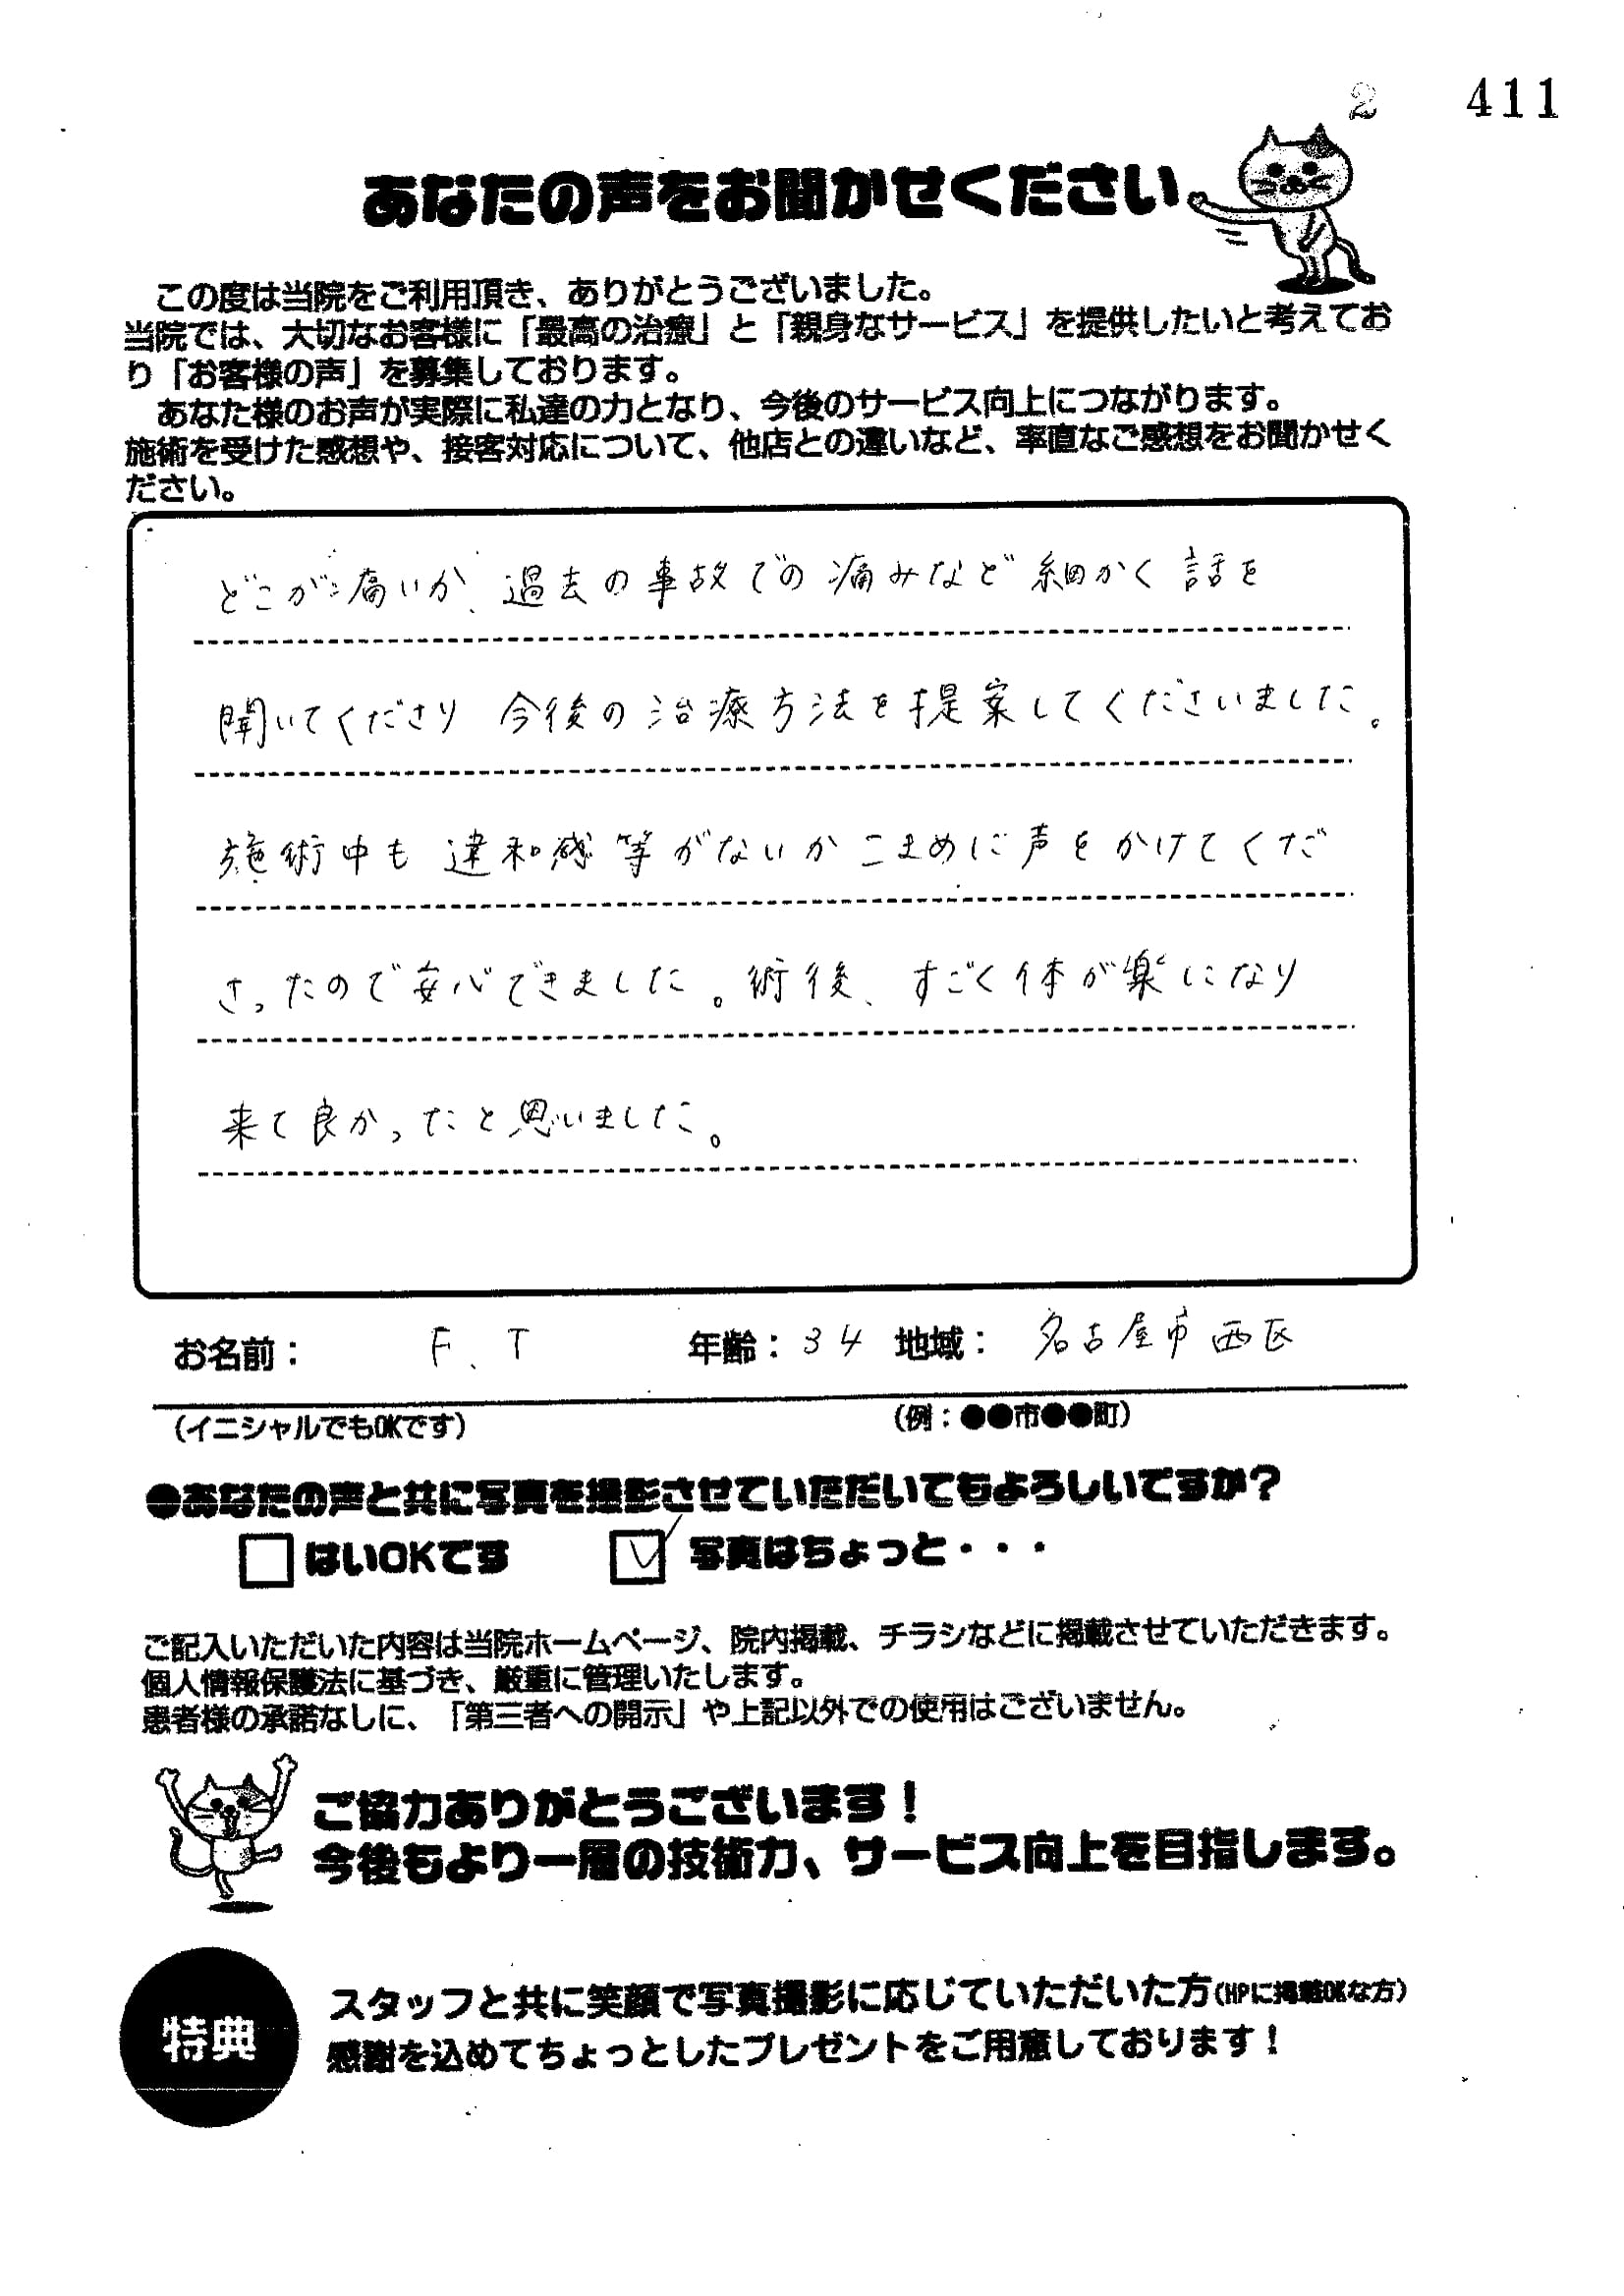 2 411
あなたの声をお聞かせください
この度は当院をご利用頂き、ありがとうございました。
当院では、大切なお客様に「最高の治療」と「親身なサービス」を提供したいと考えてお
り「お客様の声」を募集しております。
あなた様のお声が実際に私達の力となり、今後のサービス向上につながります。
施術を受けた感想や、接客対応について、他店との違いなど、率直なご感想をお聞かせく
ださい。
どこが痛いか、過去の事故での痛みなど細かく話を
聞いてくださり 今後の治療方法を提案してくださいました。
施術中も違和感等がないかこまめに声をかけてくだ
さったので安心できました。術後、すごく体が楽になり
来て良かったと思いました。
お名前： F.T 年齢：34 地域： 名古屋市西区
（イニシャルでもOKです） （例：●●市●●町）
●あなたの声と共に写真を撮影させていただいてもよろしいですか？
□はいOKです ☑写真はちょっと・・・
ご記入いただいた内容は当院ホームページ、院内掲載、チラシなどに掲載させていただきます。
個人情報保護法に基づき、厳重に管理いたします。
患者様の承諾なしに、「第三者への開示」や上記以外での使用はございません。
ご協力ありがとうございます！
今後もより一層の技術力、サービス向上を目指します。
特典
スタッフと共に笑顔で写真撮影に応じていただいた方(HPに掲載OKな方)
感謝を込めてちょっとしたプレゼントをご用意しております！